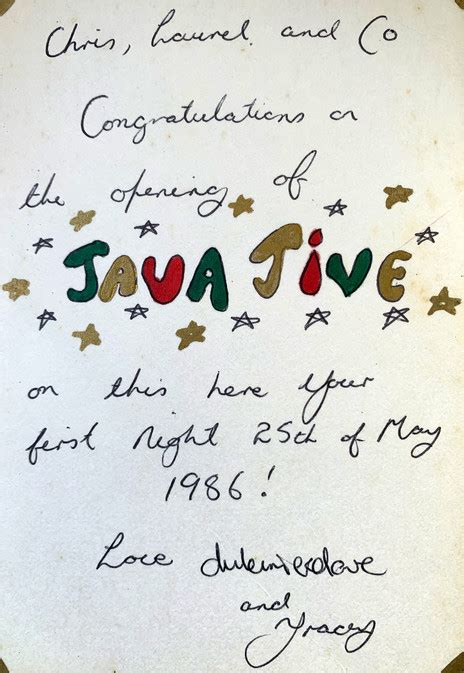 Chris, Laurel. and Co
Congratulations on
the opening of
JAVA JIVE
on this here your
first night 25th of May
1986!
Love
and
Tracey